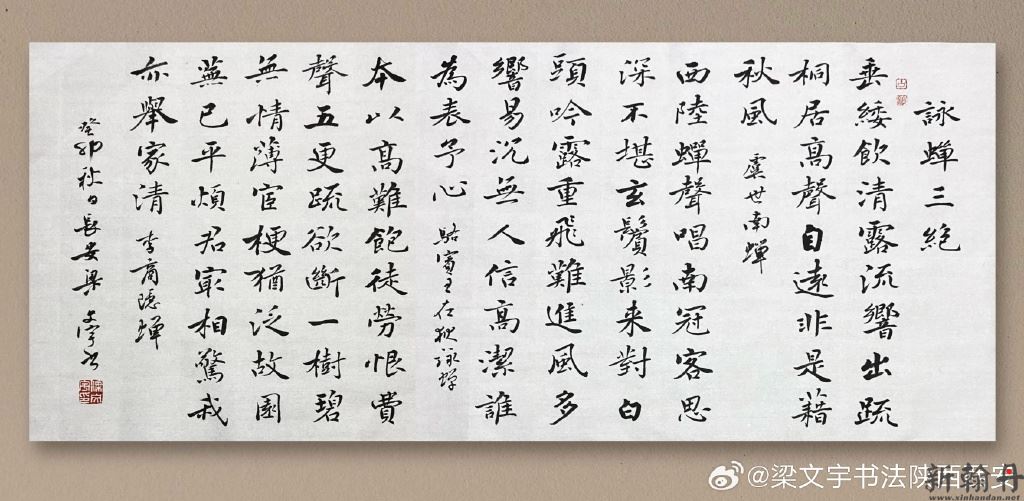 詠蝉三絶
垂緌飲清露流響出疏
桐居高聲自遠非是藉
秋風 虞世南蝉
西陸蟬聲唱南冠客思
深不堪玄鬢影来對白
頭吟露重飛難進風多
響易沉無人信高潔誰
為表予心 駱賓王在狱詠蝉
本以高難飽徒勞恨費
聲五更疏欲斷一樹碧
無情薄宦梗猶泛故園
蕪已平煩君寂相驚我
亦舉家清 李商隱蝉
癸卯秋日長安梁文宇書
@梁文宇书法陕西
新翰丹
www.xinhandan.net